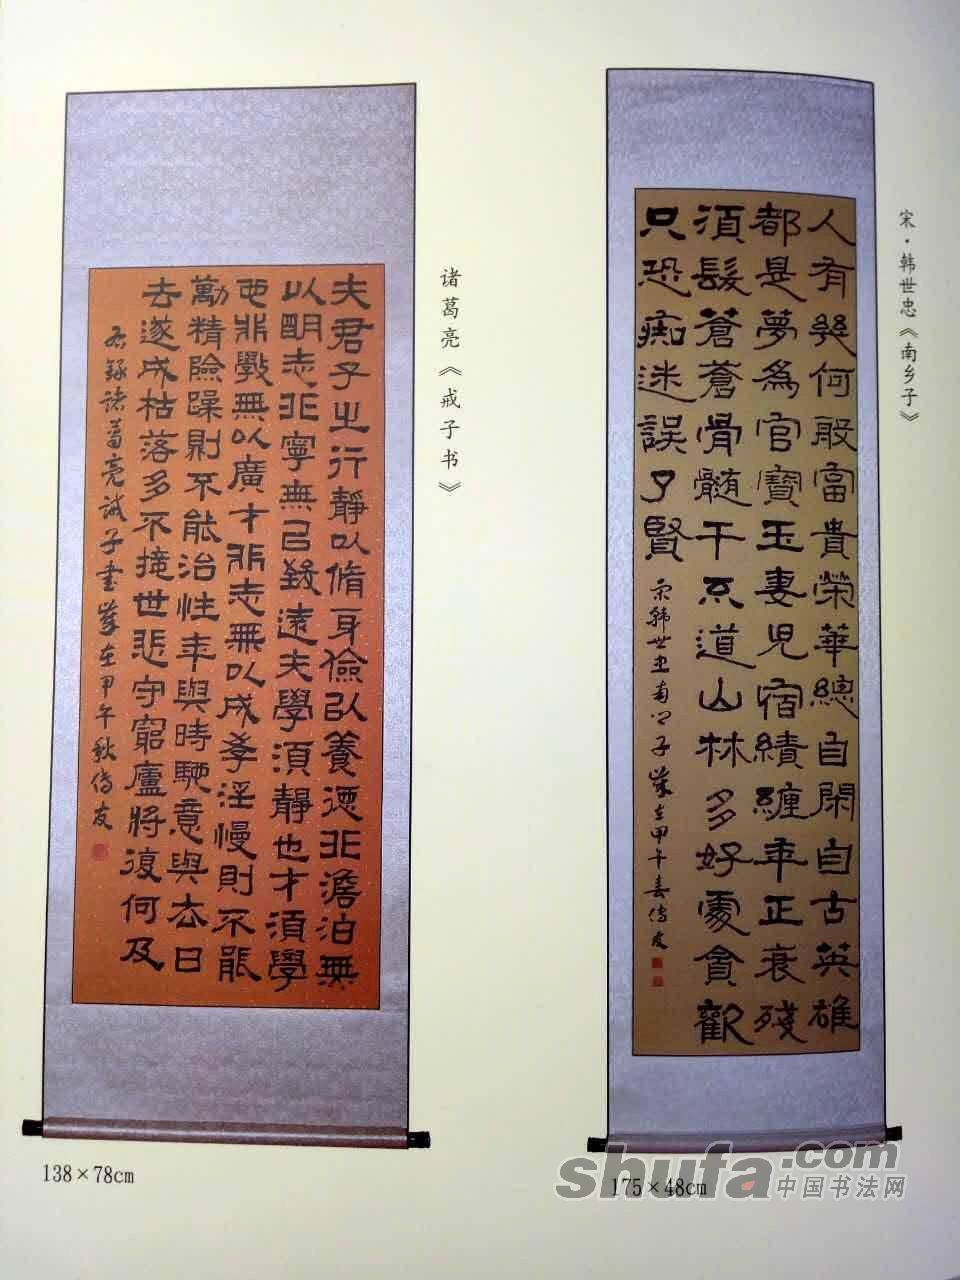 宋·韩世忠《南乡子》
人有幾何般富貴榮華總自閑自古英雄
都是夢為官寶玉妻兒宿績纏年正衰殘
須髮蒼蒼骨髓干不道山林多好處貪歡
只恐痴迷誤了賢
宋韓世忠南鄉子歲在甲午春傳友
诸葛亮《戒子书》
夫君子之行靜以脩身儉以養德非澹泊無
以明志非寧無以致遠夫學須靜也才須學
也非學無以廣才非志無以成學淫慢則不能
勵精險躁則不能治性年與時馳意與去日
去遂成枯落多不接世悲守窮廬將復何及
右錄諸葛亮誡子書歲在甲午秋傳友
138×78cm
175×48cm
shufa.com
中国书法网